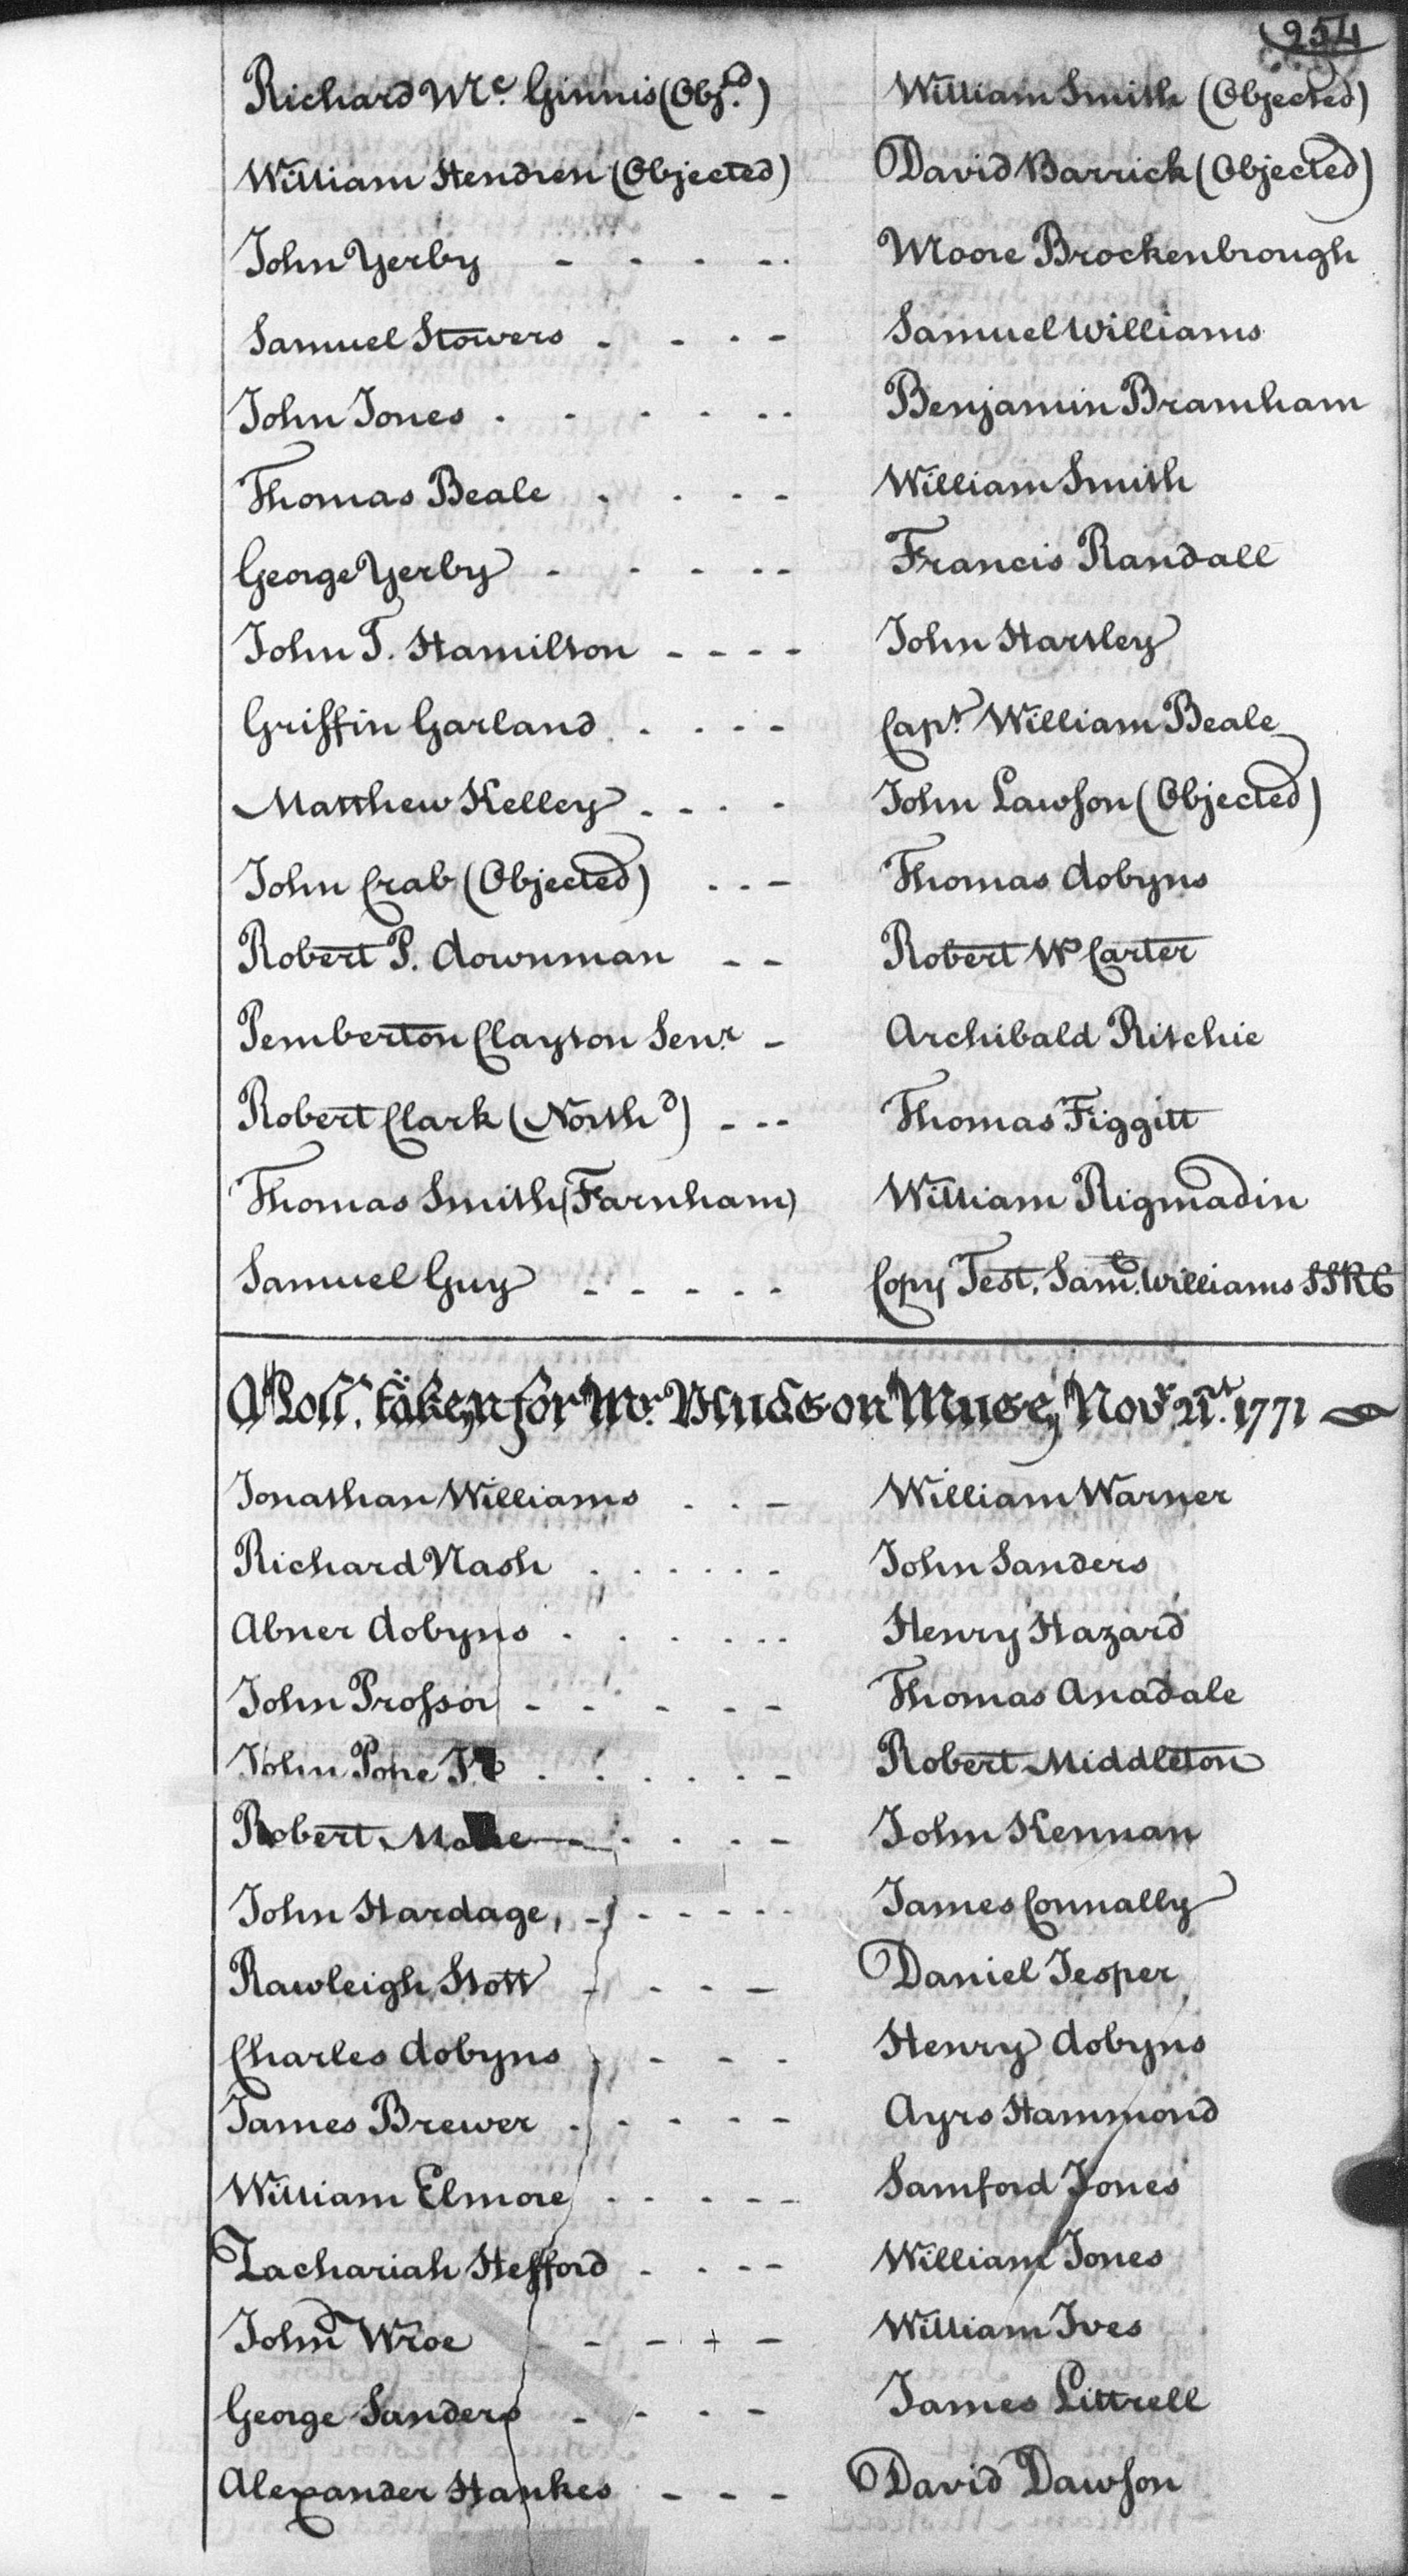 254
Richard Mc. Ginnis (Objd.) William Smith (Objected)
William Hendren (Objected) David Barrick (Objected)
John Yerby - - - - - Moore Brockenbrough
Samuel Stowers - - - - Samuel Williams
John Jones - - - - - - Benjamin Bramham
Thomas Beale - - - - William Smith
George Yerby - - - - - Francis Randall
John T. Hamilton - - - - John Hartley
Griffin Garland - - - - Capt. William Beale
Matthew Kelley - - - - John Lawson (Objected)
John Crab (Objected) - - - Thomas dobyns
Robert P. downman - - Robert W Carter
Pemberton Clayton Senr. - Archibald Ritchie
Robert Clark (Northd) - - - Thomas Figgitt
Thomas Smith (Farnham) William Rigmadin
Samuel Guy - - - - - Copy Test. Saml. Williams SSRC
A Poll, taken for Mr. Hudson Muse, Novr 21st. 1771
Jonathan Williams - - - William Warner
Richard Nash - - - - - - John Sanders
Abner dobyns - - - - - - Henry Hazard
John Prossor - - - - - Thomas Anadale
John Pope Jr - - - - - - Robert Middleton
Robert - - - - - John Kennan
John Hardage, - - - - - - James Connally
Rawleigh Stott - - - - Daniel Jesper
Charles dobyns - - - - Henry dobyns
James Brewer - - - - - Ayrs Hammond
William Elmore - - - - - Samford Jones
Zachariah Hefford - - - - William Jones
John Wroe - - - + - William Ives
George Sanders - - - - James Littrell
Alexander Hankes - - - David Dawson